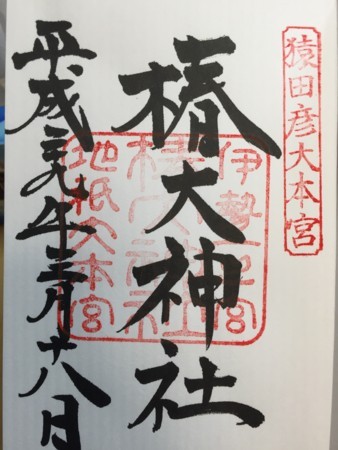 猿田彦大本宮
椿大神社
伊勢一之宮
椿大神社
地祇大本宮
平成二十九年三月十八日